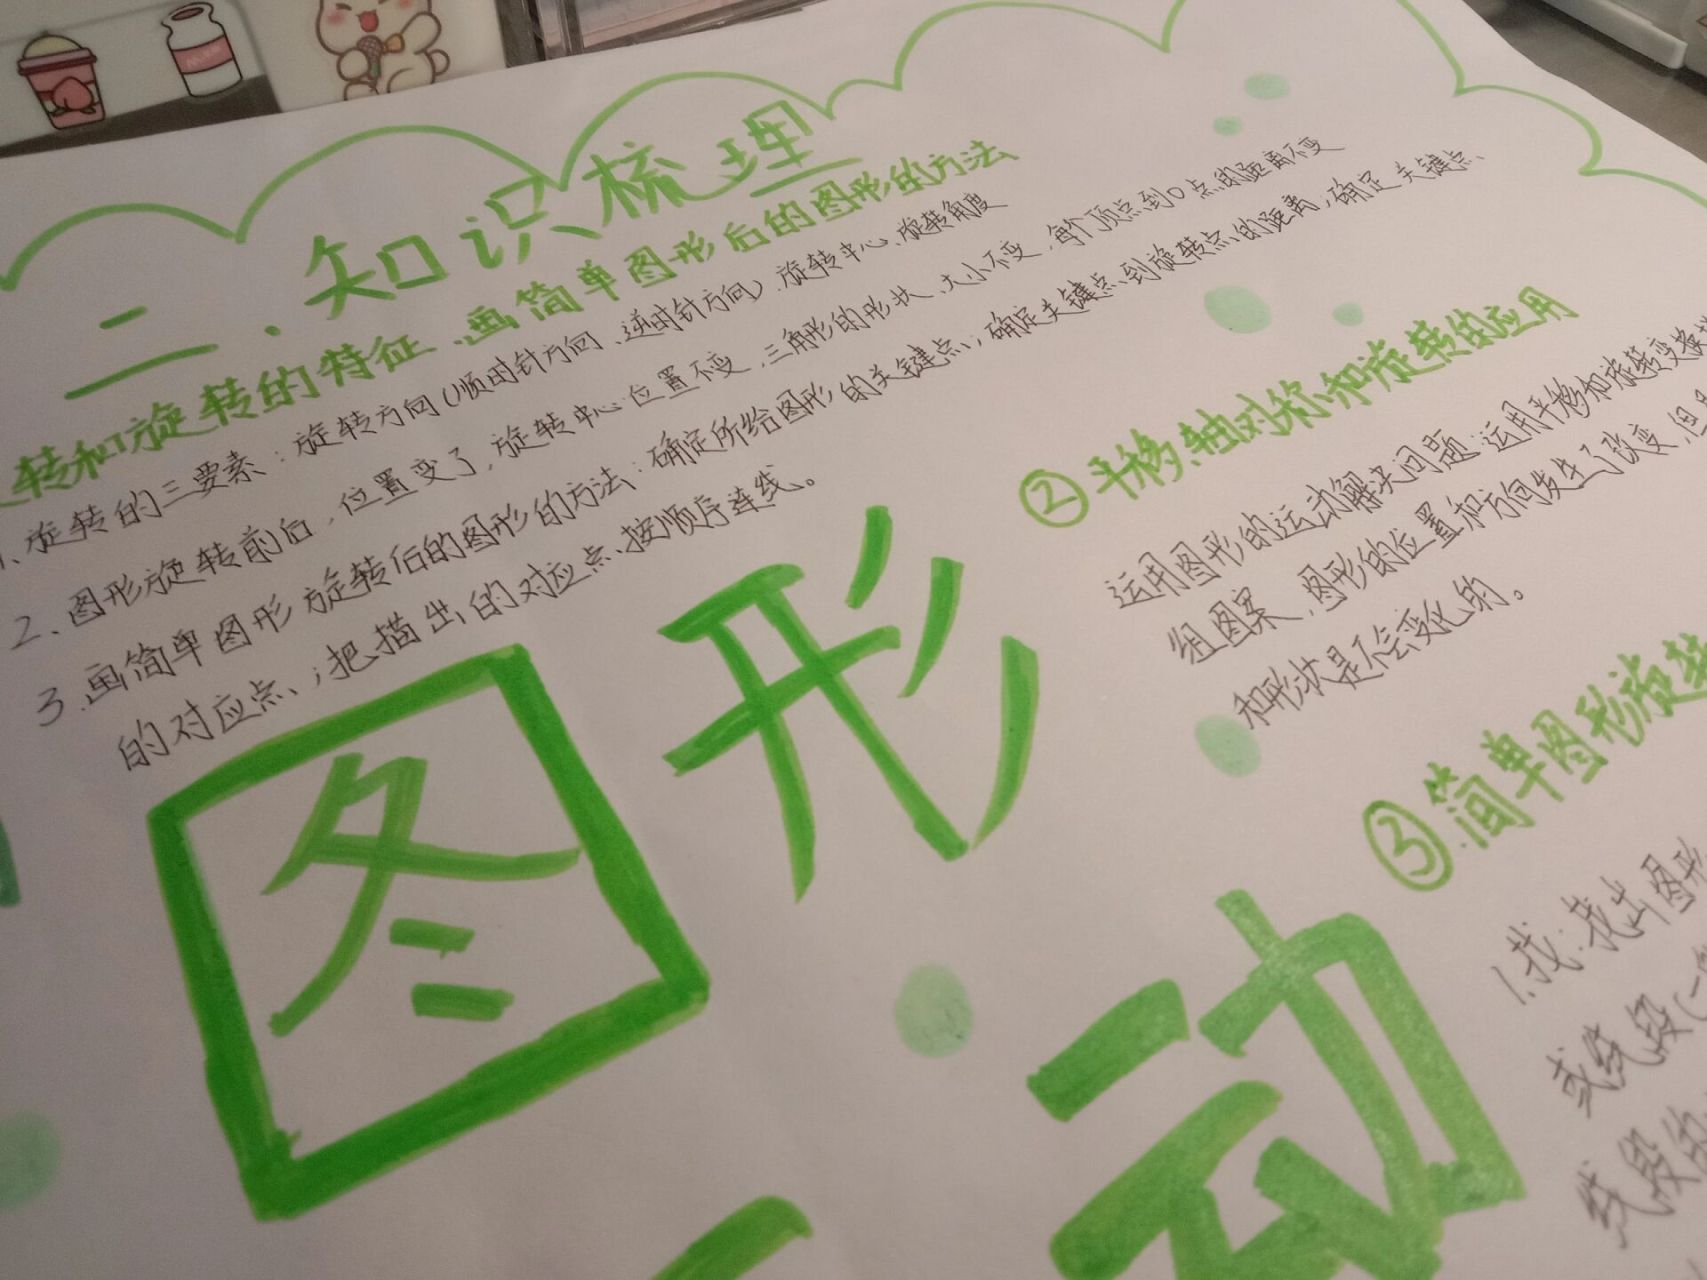 二、知识梳理
转和旋转的特征、画简单图形后的图形的方法
1、旋转的三要素：旋转方向(顺时针方向、逆时针方向)、旋转中心、旋转角度
2、图形旋转前后，位置变了，旋转中心位置不变，三角形的形状、大小不变，每个顶点到O点的距离不变
3.画简单图形旋转后的图形的方法：确定所给图形的关键点；确定关键点到旋转点的距离，确定关键点
的对应点；把描出的对应点按顺序连线。
②平移、轴对称和旋转的应用
运用图形的运动解决问题：运用平移和旋转变换
组图案，图形的位置和方向发生了改变，但
和形状是不会变化的。
③.简单图形旋转
1.找：找出图形
或线段(一
线段的
图形
动
MILK